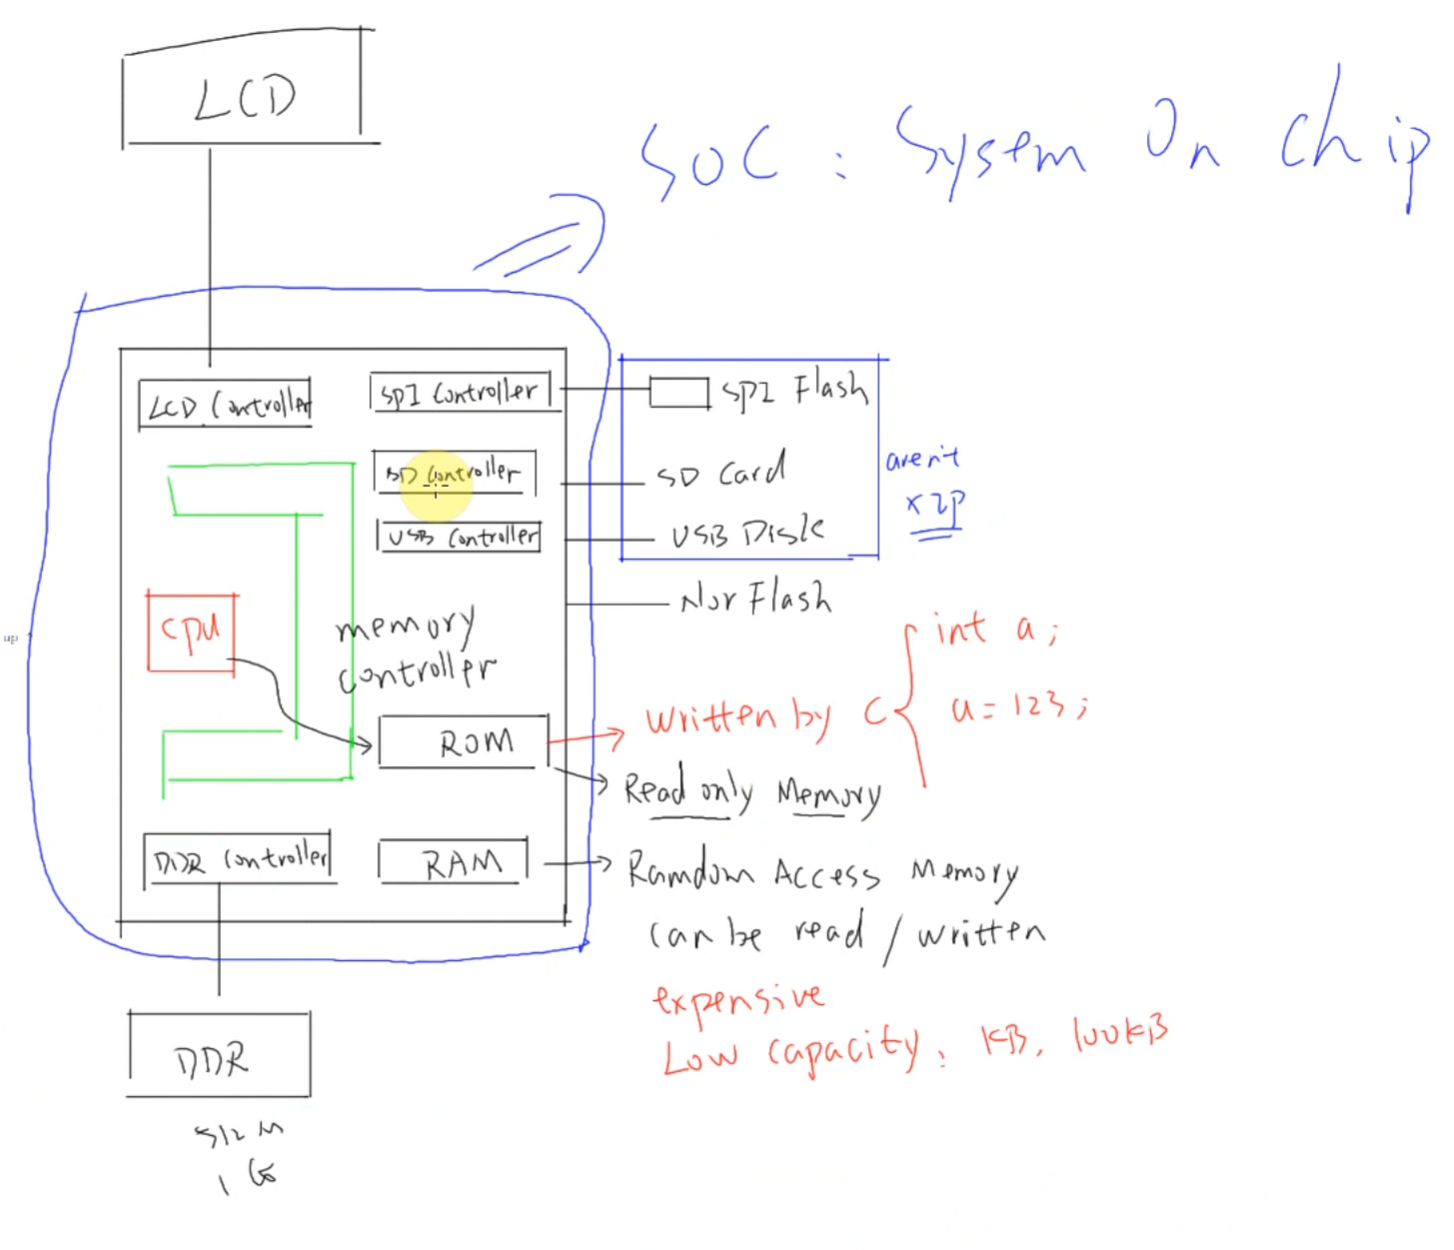 LCD
SOC : System On Chip
LCD Controller
SPI Controller
SPI Flash
SD Controller
SD Card
aren't
XIP
USB Controller
USB Disk
Nor Flash
CPU
memory
controller
int a;
a = 123;
written by C
ROM
Read only Memory
DDR Controller
RAM
Ramdom Access Memory
can be read / written
expensive
Low capacity: KB, 100KB
DDR
512 M
1 G